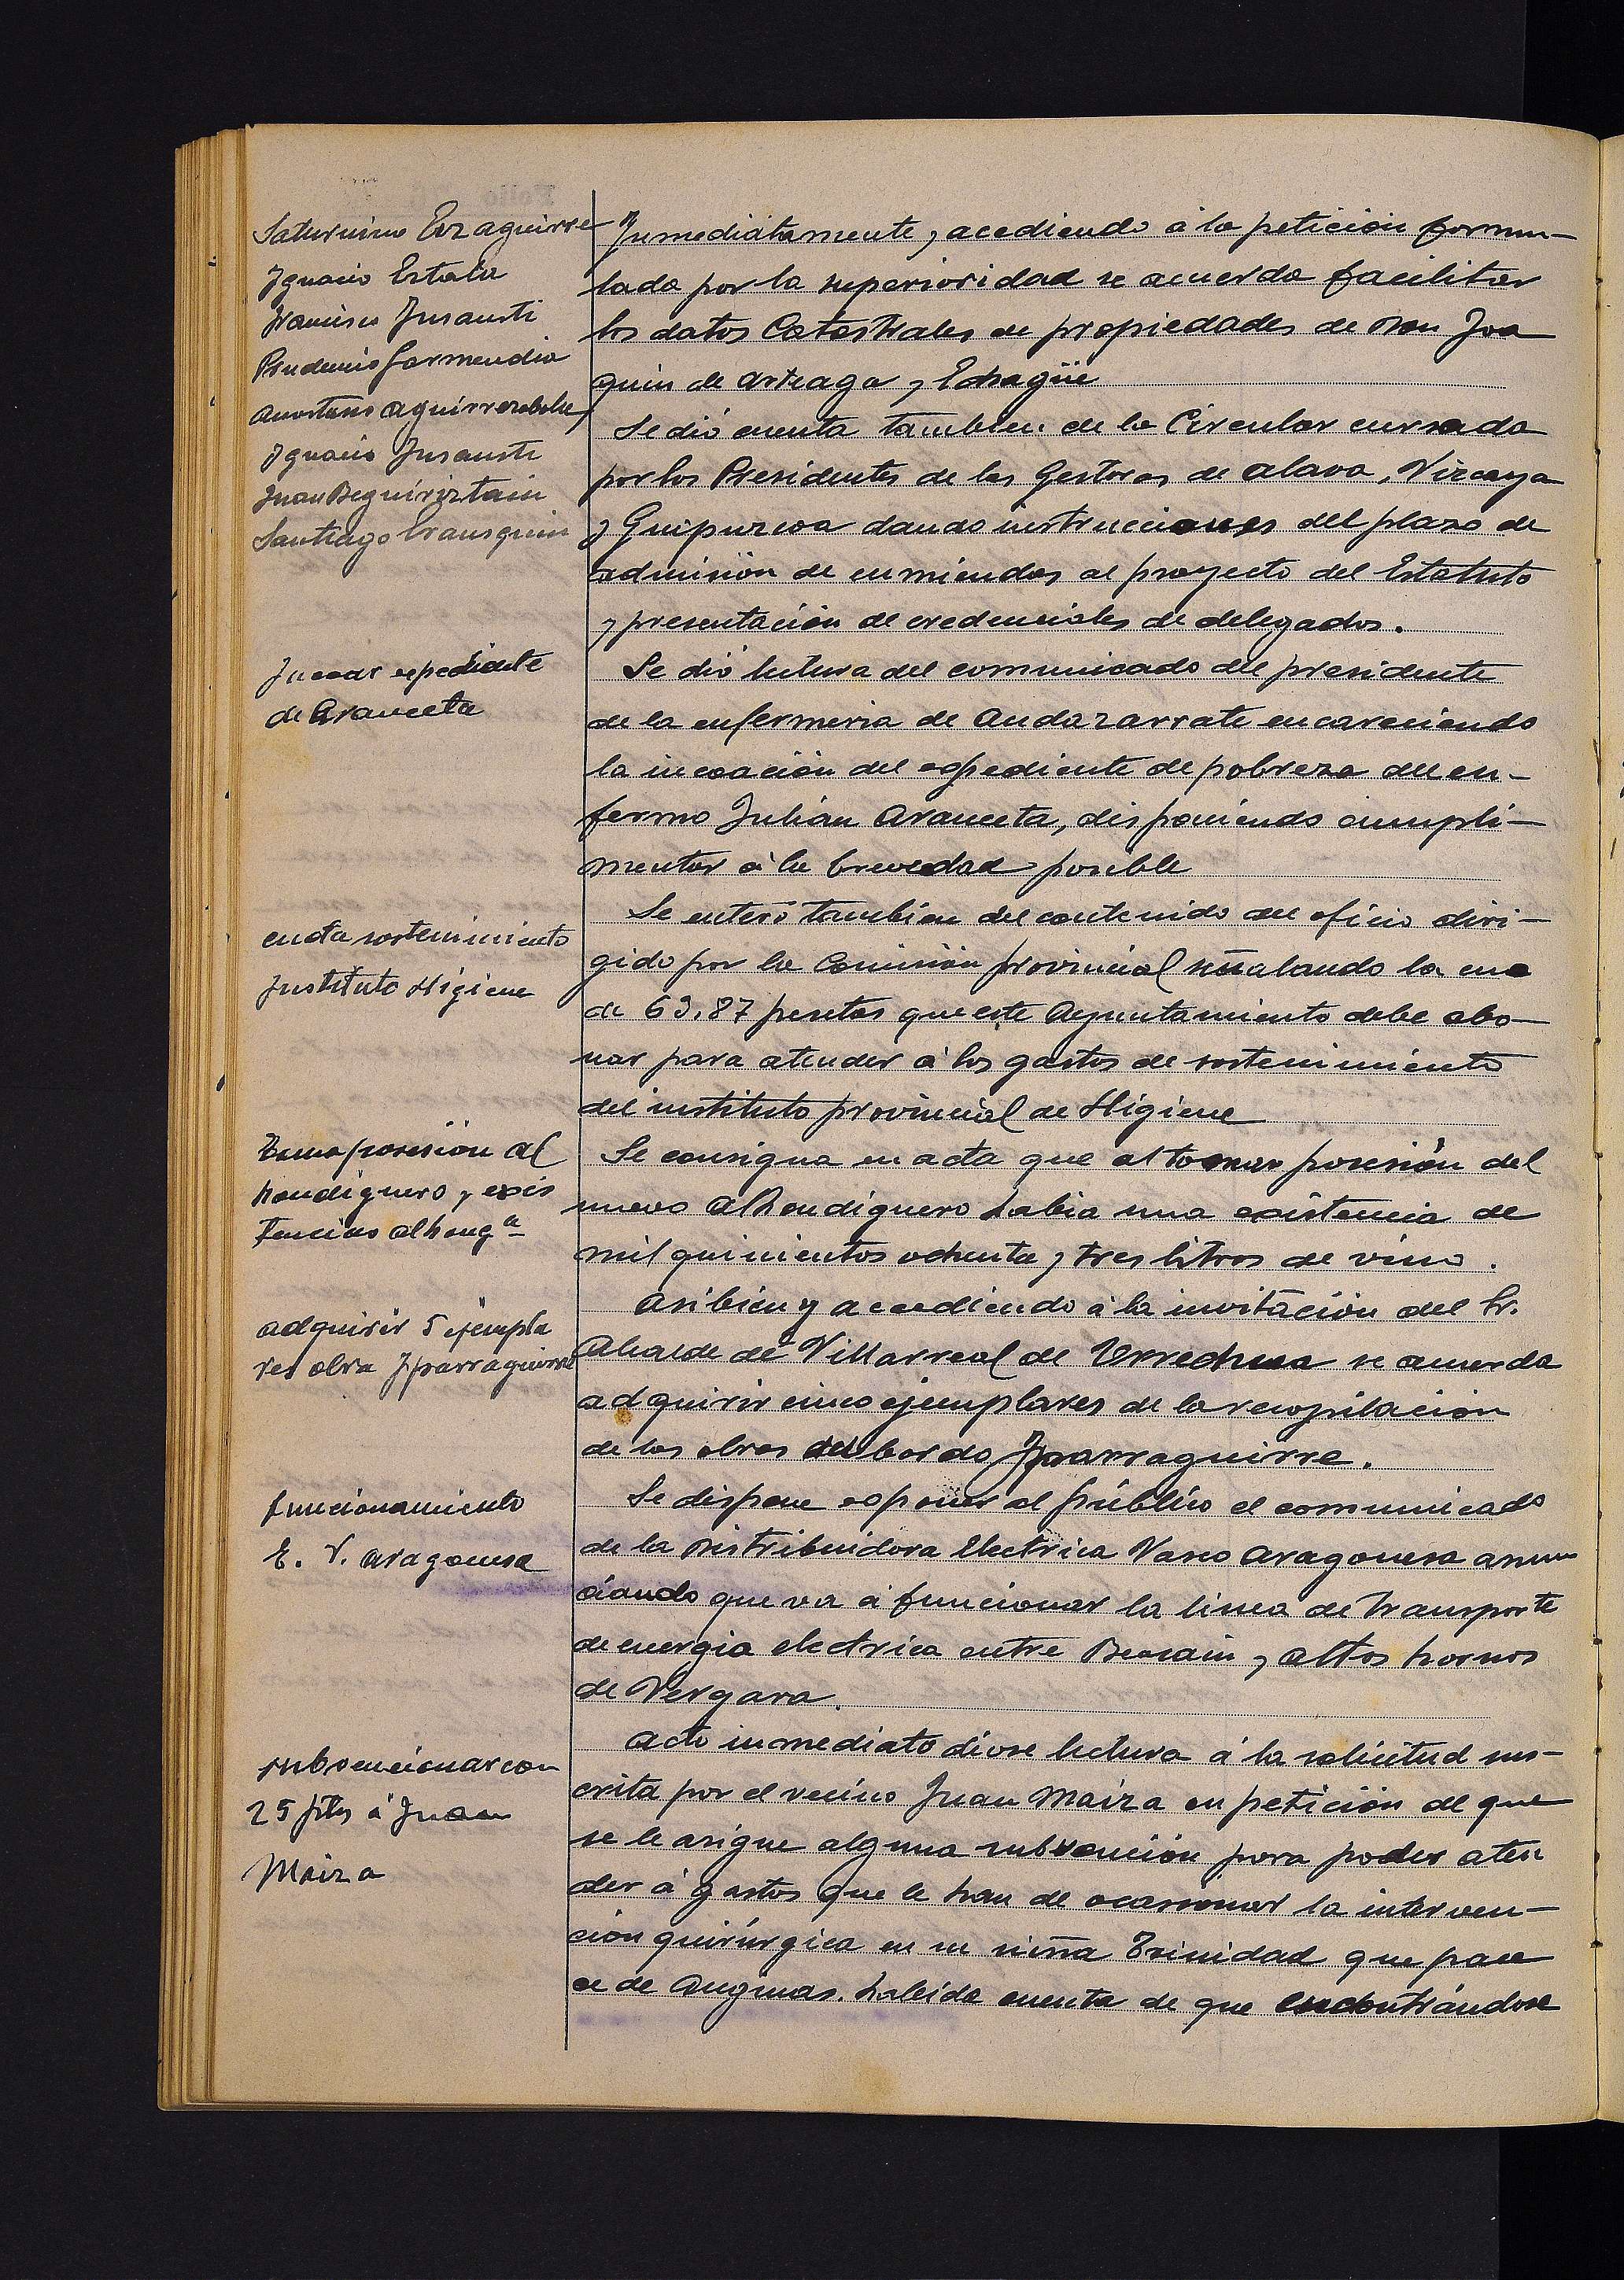 Saturnino Ezaguirre
Ignacio Estala
Francisco Insausti
Prudencio Garmendia
Anastasio Aguirrezabala
Ignacio Insausti
Juan Beguiristain
Santiago Irausquin
Inmediatamente, accediendo á la peticion formu-
lada por la superioridad se acuerda facilitar
los datos Catastrales de propiedades de Don Joa
quin de Arteaga y Echagüe
Se dió cuenta tambien de la Circular cursada
por los Presidentes de las Gestoras de Alava, Vizcaya
y Guipuzcoa dando instrucciones del plazo de
admisión de enmiendas al proyecto del Estatuto
y presentación de credenciales de delegados.
Incoar espediente
de Aranceta
Se dió lectura del comunicado del presidente
de la enfermeria de Andazarrate encareciendo
la incoación del espediente de pobreza del en-
fermo Julián Aranceta, disponiendo cumpli-
mentar á la brevedad posible
cuota sostenimiento
Instituto Higiene
Se enteró tambien del contenido del oficio diri-
gido por la Comisión provincial señalando la cuo
de 63,87 pesetas que este Ayuntamiento debe abo-
nar para atender á los gastos de sostenimiento
del instituto provincial de Higiene
Toma posesión al
hondiguero y exis
tencias alhong.a
Se consigna en acta que al tomar posesión del
nuevo alhondiguero habia una existencia de
mil quinientos ochenta y tres litros de vino.
adquirir 5 ejempla
res obra Iparraguirre
Asibien y accediendo á la invitación del Sr.
Alcalde de Villarreal de Urrechua se acuerda
adquirir cinco ejemplares de la recopilación
de las obras del bardo Iparraguirre.
funcionamiento
E. V. Aragonesa
Se dispone esponer al público el comunicado
de la Distribuidora Electrica Vasco Aragonesa anun
ciando que va á funcionar la linea de transporte
de energia electrica entre Beasain y altos hornos
de Vergara.
subvencionar con
25 ptas á Juan
Maiza
Acto inmediato dióse lectura á la solicitud sus-
crita por el vecino Juan Maiza en petición de que
se le asigne alguna subvención para poder aten
der á gastos que le han de ocasionar la interven-
ción quirúrgica en su niña Trinidad que pade
ce de Anginas. habida cuenta de que encontrándose